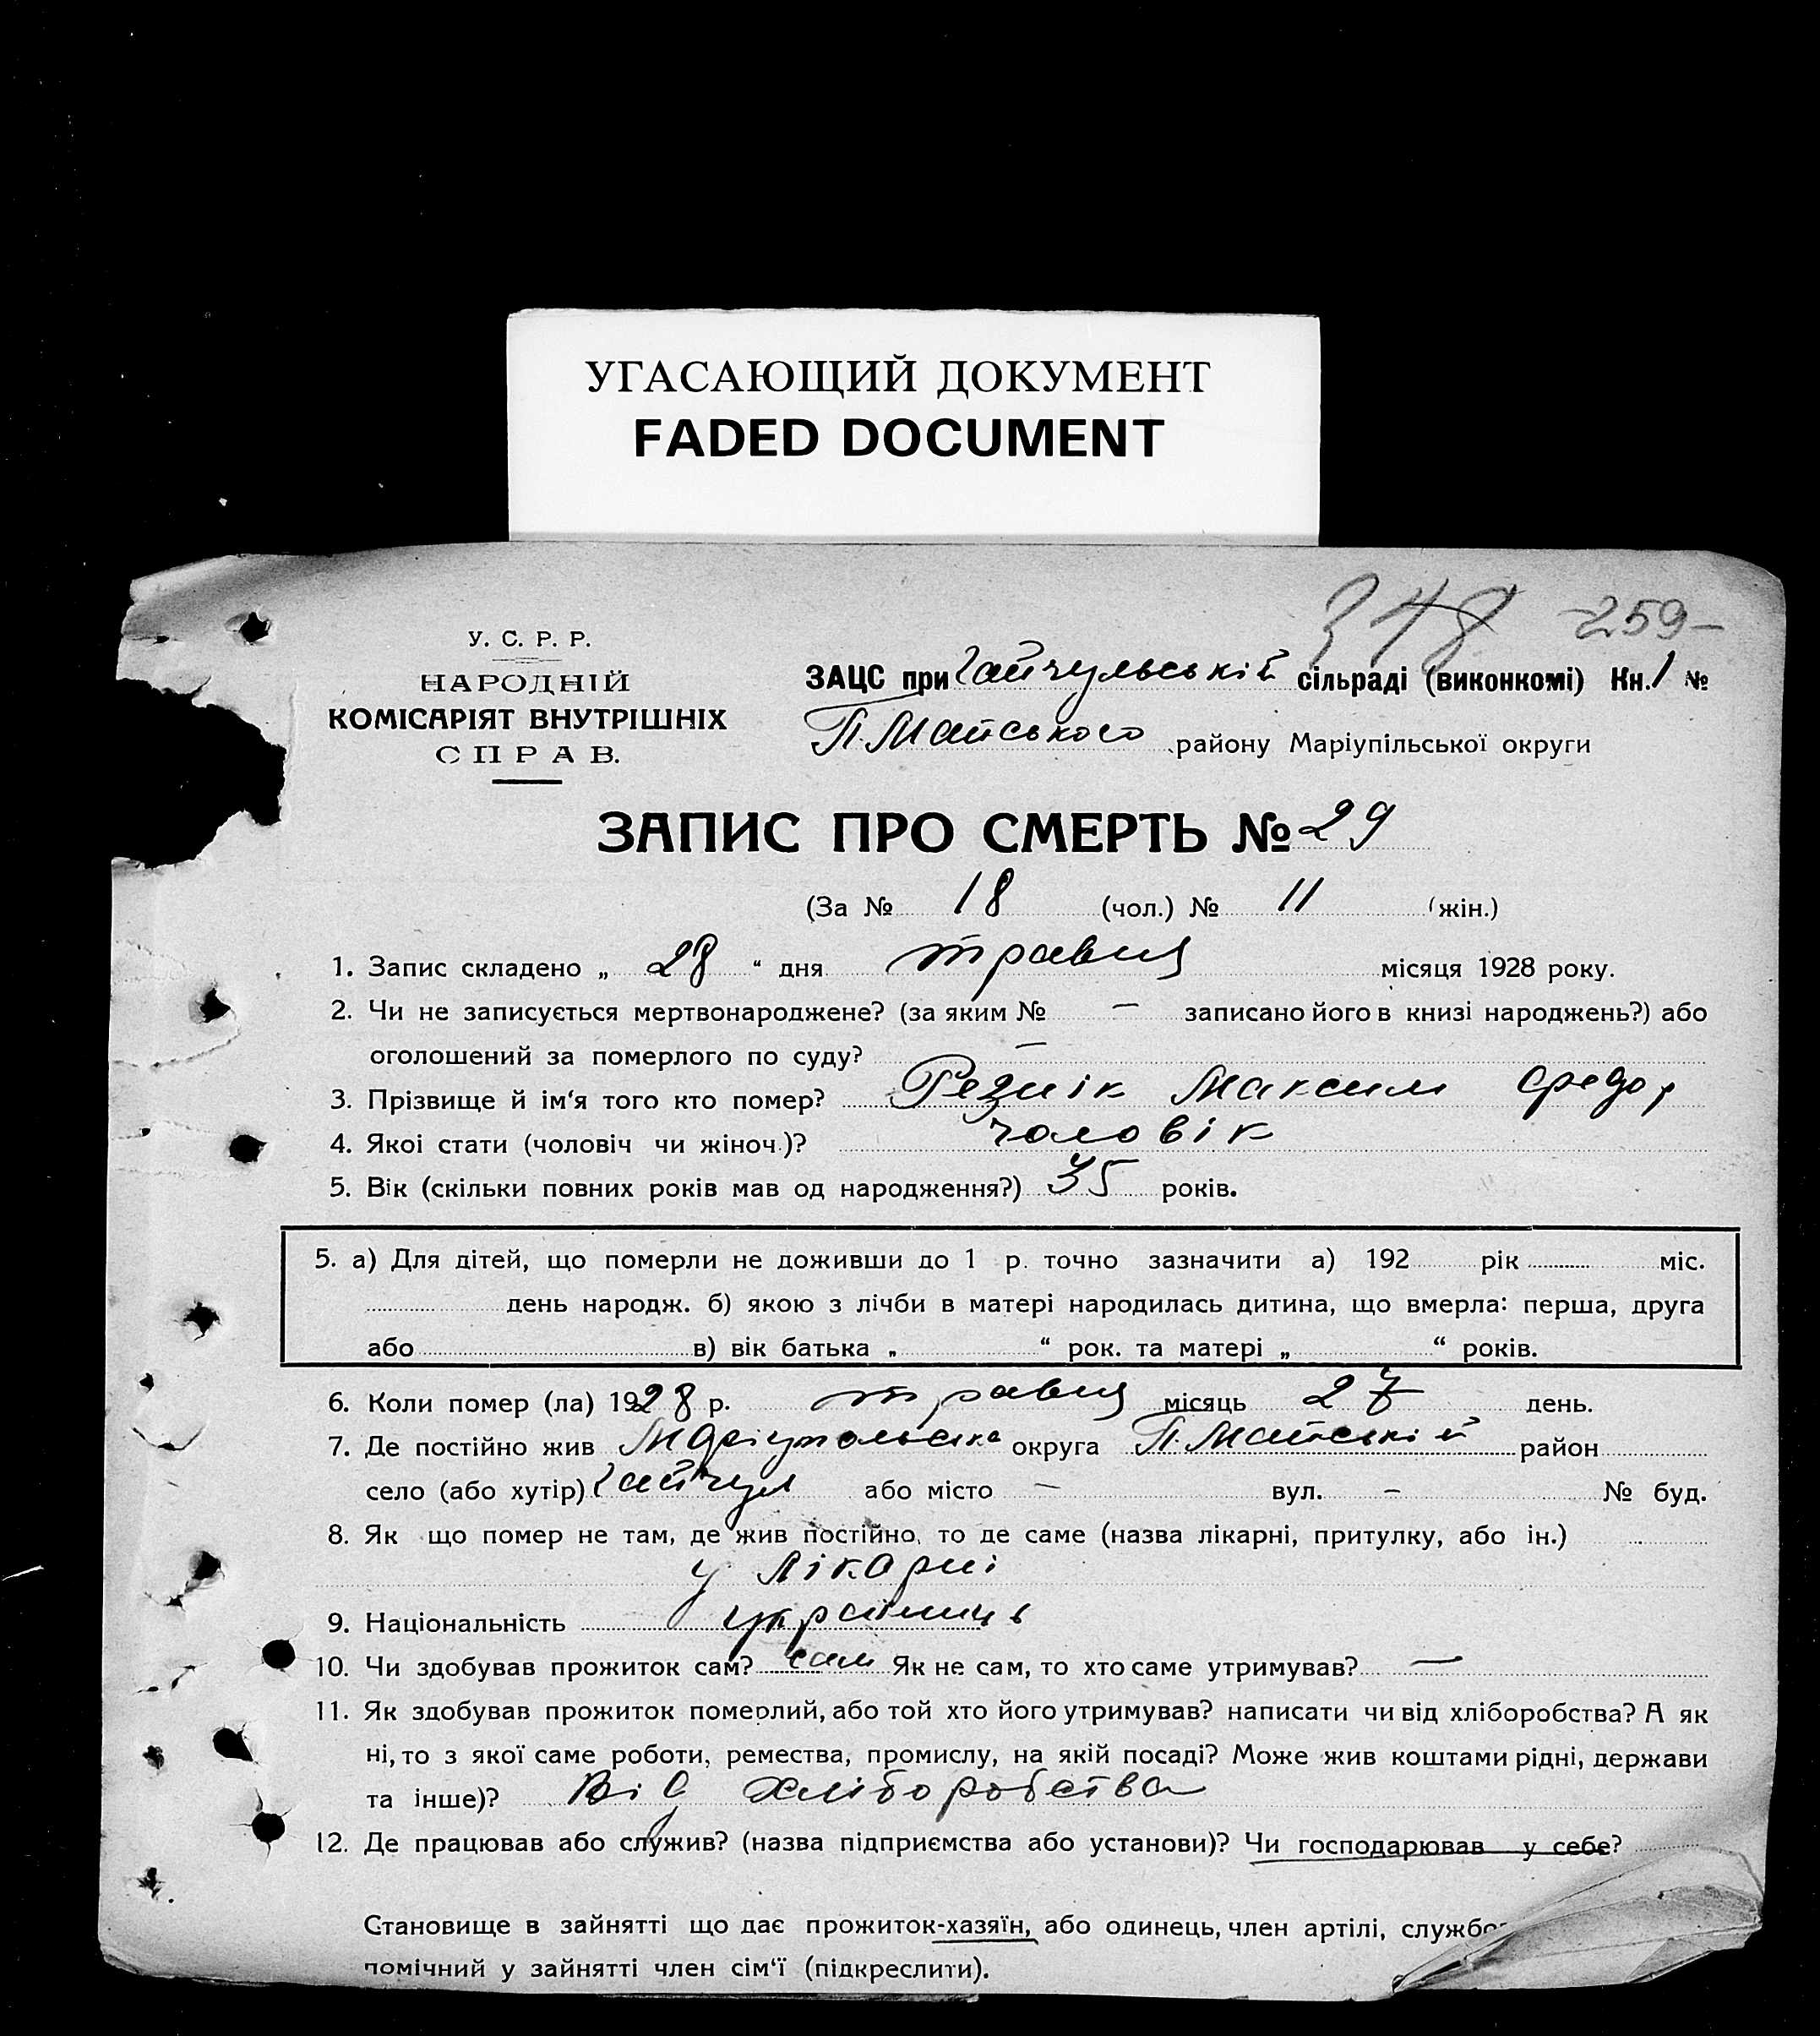 УГАСАЮЩИЙ ДОКУМЕНТ
FADED DOCUMENT
348 -259-
У. С. Р. Р.
НАРОДНІЙ
КОМІСАРІЯТ ВНУТРІШНІХ
СПРАВ.
ЗАЦС при Гайчульській сільраді (виконкомі) Кн. 1 №
П. Майського району Маріупільської округи
ЗАПИС ПРО СМЕРТЬ № 29
(За № 18 (чол.) № 11 (жін.)
1. Запис складено „ 28 “ дня травня місяця 1928 року.
2. Чи не записується мертвонароджене? (за яким № — записано його в книзі народжень?) або
оголошений за померлого по суду? —
3. Прізвище й ім‘я того кто помер? Резнік Максим Федор
4. Якоі стати (чоловіч чи жіноч.)? чоловік
5. Вік (скільки повних років мав од народження?) 35 років.
5. а) Для дітей, що померли не доживши до 1 р. точно зазначити а) 192 рік міс.
день народж. б) якою з лічби в матері народилась дитина, що вмерла: перша, друга
або в) вік батька „ “ рок. та матері „ “ років.
6. Коли помер (ла) 1928 р. травня місяць 27 день.
7. Де постійно жив Маріупольська округа П. Майський район
село (або хутір) Гайчул або місто — вул. — № буд.
8. Як що помер не там, де жив постійно, то де саме (назва лікарні, притулку, або ін.)
у лікарні
9. Національність українць
10. Чи здобував прожиток сам? сам Як не сам, то хто саме утримував? —
11. Як здобував прожиток померлий, або той хто його утримував? написати чи від хліборобства? А як
ні, то з якої саме роботи, ремества, промислу, на якій посаді? Може жив коштами рідні, держави
та інше)? Від хліборобства
12. Де працював або служив? (назва підприємства або установи)? Чи господарював у себе?
Становище в зайнятті що дає прожиток-хазяїн, або одинець, член артілі, службо
помічний у зайнятті член сім‘ї (підкреслити).